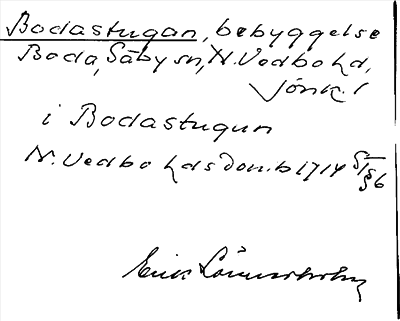 Bodastugan, bebyggelse
Boda, Säby sn, N. Vedbo hd,
Jönk. l
i Bodastugun
N. Vedbo hds dom.b 1714
Erik